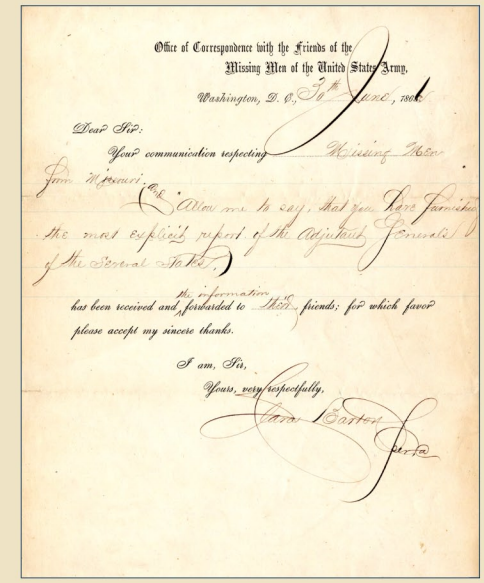 Office of Correspondence with the Friends of the
Missing Men of the United States Army,
Washington, D. C., 30th June, 186
Dear Sir:
Your communication respecting Missing Men
from Missouri, and
Allow me to say, that you have furnished
the most explicit report of the Adjutant Generals
of the Several States,
has been received and the information forwarded to their friends; for which favor
please accept my sincere thanks.
I am, Sir,
Yours, very respectfully,
Clara Barton